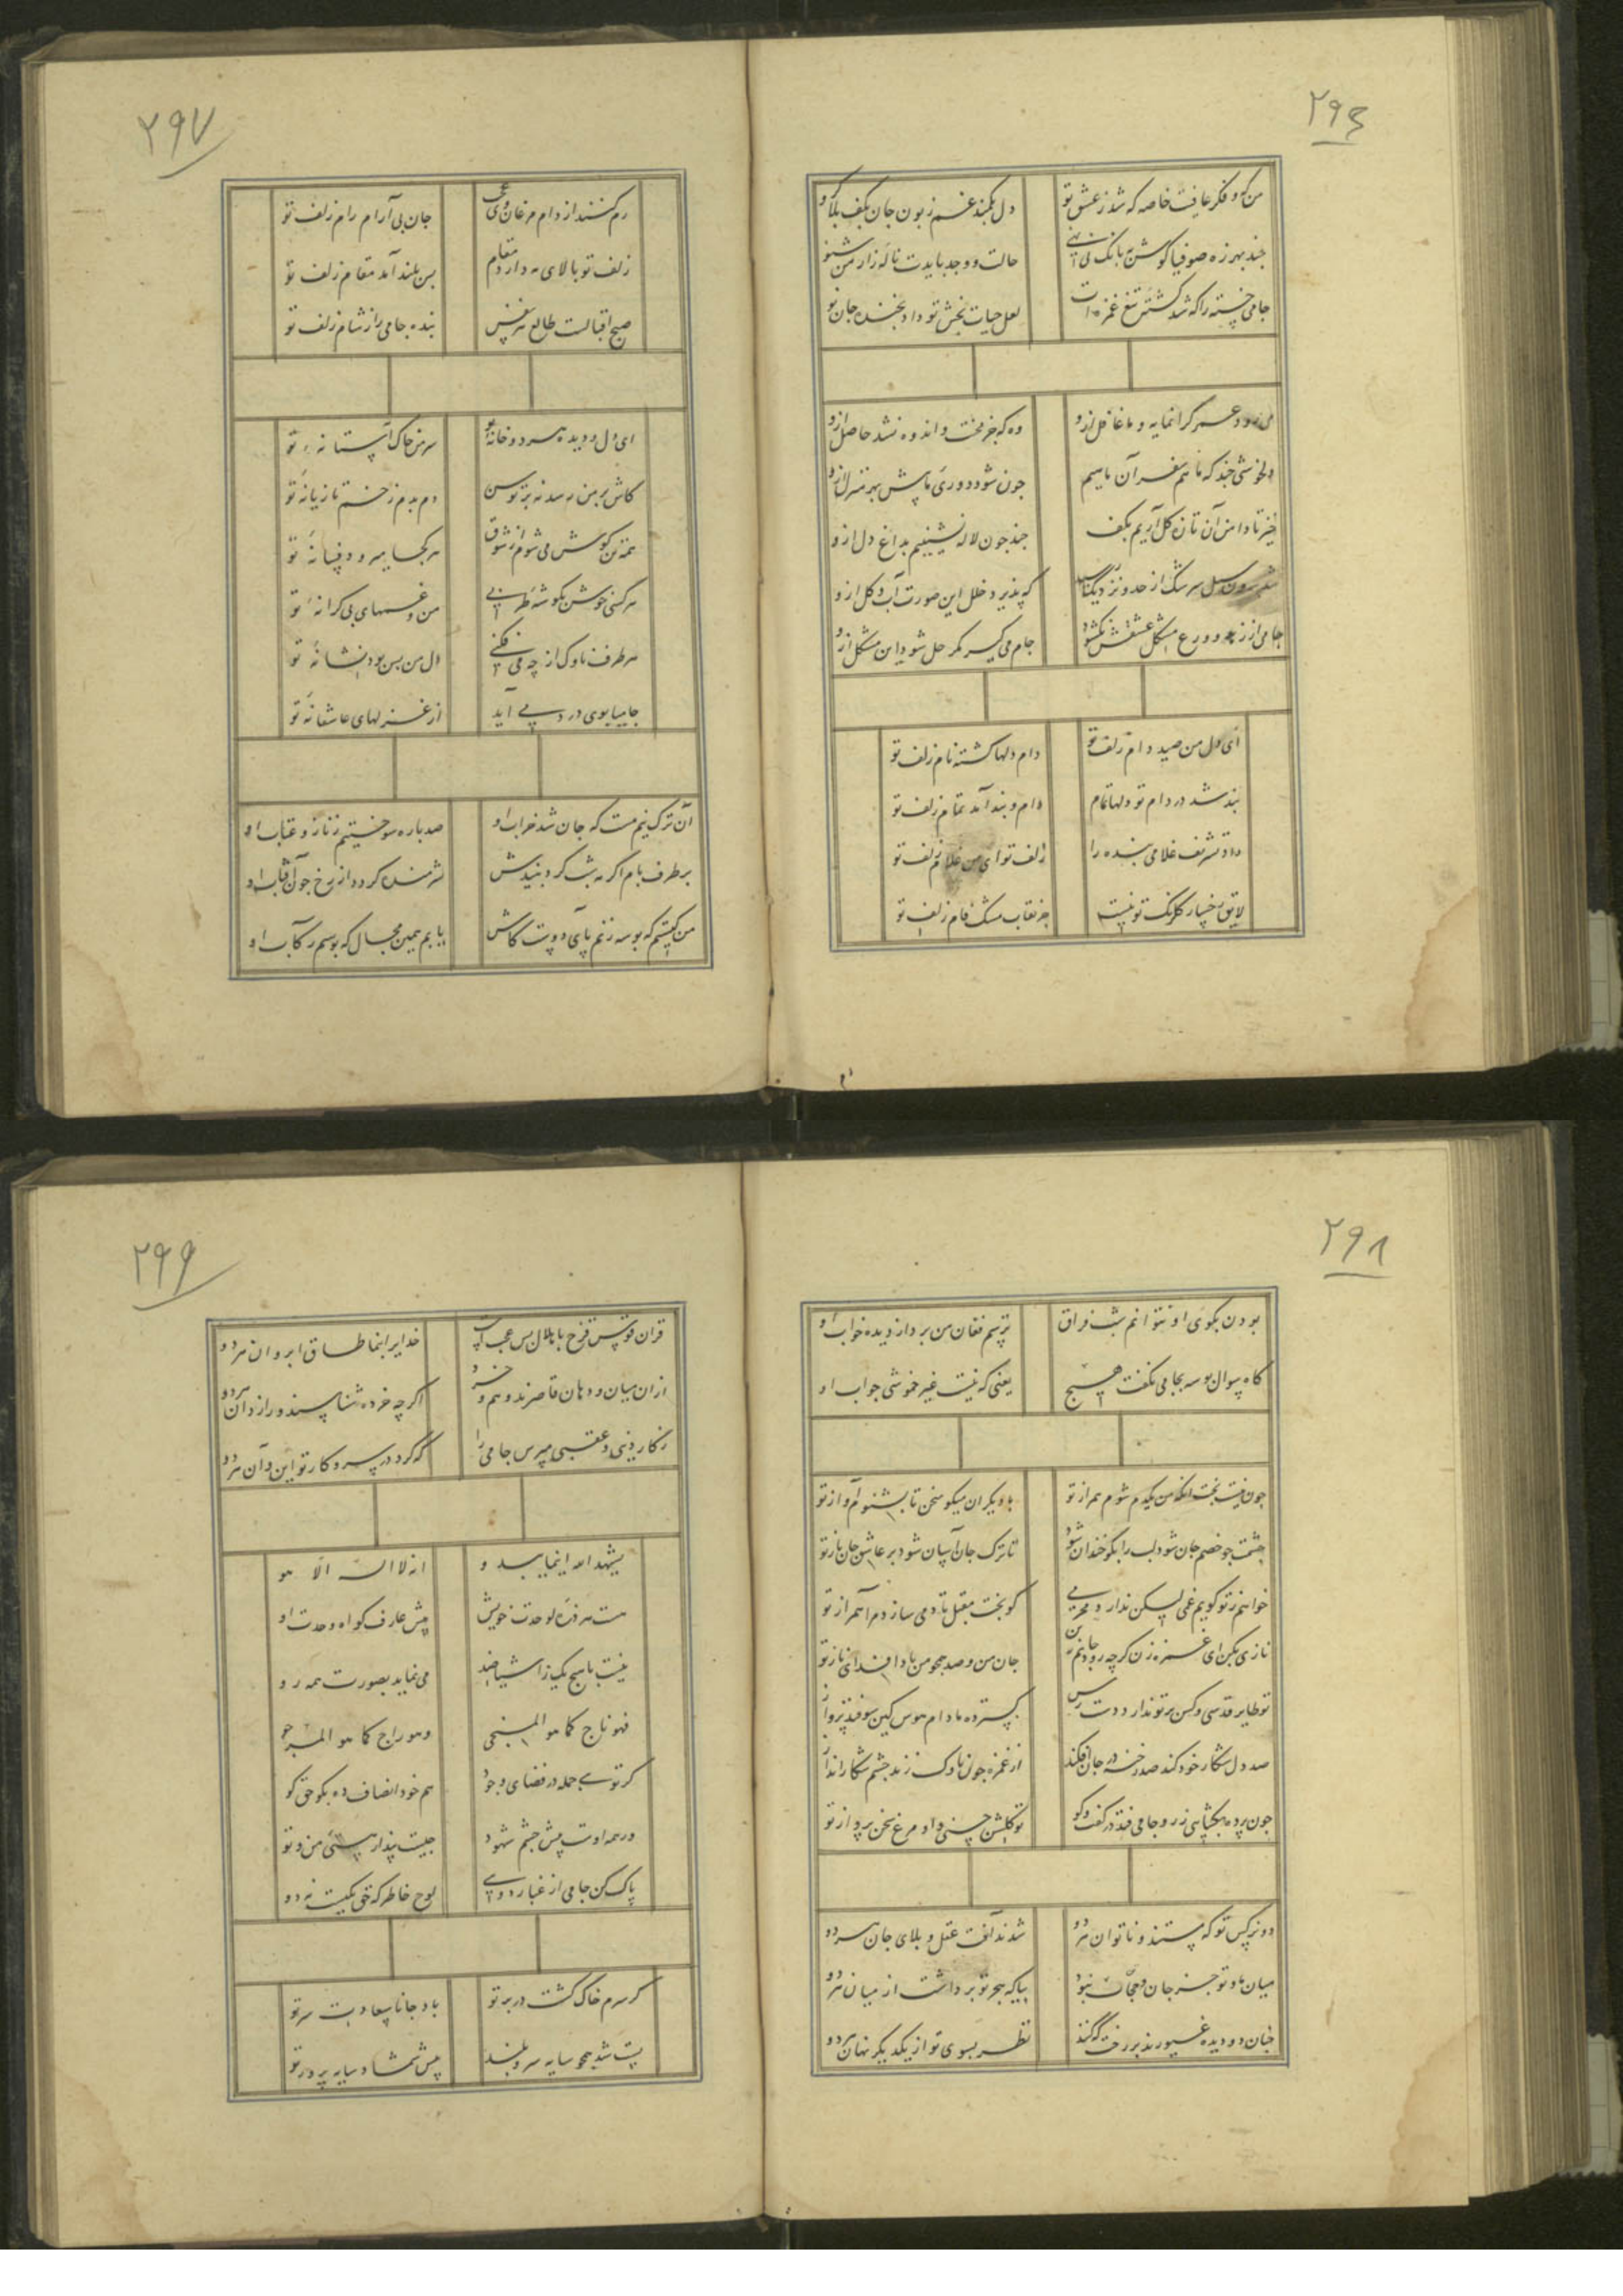 ۲۹۶
من که و فکر عافیت خاصه که شد ز عشق تو
دل بکمند غم زبون جان بکف بلا کرو
چند بهرزه صوفیا کوش به بانک نی نهی
حالت و وجد بایدت ناله زار من شنو
جامی خسته را که شد کشته تیغ غمزه ات
لعل حیات بخش تو داد بخنده جان نو
می رود عمر کرانمایه و ما غافل ازو
وه که جز محنت و اندوه نشد حاصل ازو
دلخوشی چند که ما هم سفر آن ماهیم
چون شود دوری ما پیش بهر منزل ازو
خیز تا دامن آن تازه کل آریم بکف
چند چون لاله نشینیم بداغ دل ازو
شد برون سیل سرشک از حد و نزدیک رسید
که پذیرد خلل این صورت آب و کل ازو
جامی از زهد و ورع مشکل عشقش نکشود
جام می کیر مکر حل شود این مشکل ازو
ای دل من صید دام زلف تو
دام دلها کشته نام زلف تو
بند شد در دام تو دلها تمام
دام و بند آمد تمام زلف تو
داد تشریف غلامی بنده را
زلف تو ای من غلام زلف تو
لایق رخسار کلرنک تو نیست
جز نقاب مشک فام زلف تو
۲۹۷
رم کنند از دام مرغان وین عجب
جان بی آرام رام زلف تو
زلف تو بالای مه دارد مقام
بس بلند آمد مقام زلف تو
صبح اقبالست طالع هر نفس
بنده جامی را ز شام زلف تو
ای دل و دیده هر دو خانه تو
سر من خاک آستانه تو
کاش بر من رسد نه بر توسن
دم بدم زخم تازیانه تو
همه تن کوش می شوم از شوق
هر کجا میرود فسانه تو
هر کسی خوش بکوشه طربی
من و غمهای بی کرانه تو
هر طرف ناوک از چه می فکنی
دل من بس بود نشانه تو
جامیا بوی درد می آید
از غزلهای عاشقانه تو
آن ترک نیم مست که جان شد خراب او
صد باره سوختیم ز ناز و عتاب او
بر طرف بام اکر مه شب کرد بیندش
شرمنده کردد از رخ چون آفتاب او
من کیستم که بوسه زنم پای دوست کاش
یابم همین مجال که بوسم رکاب او
۲۹۸
بودن بکوی او نتوانم شب فراق
ترسم فغان من برد از دیده خواب او
کاه سوال بوسه بجامی نکفت هیچ
یعنی که نیست غیر خموشی جواب او
چون نیست بخت آنکه من یکدم شوم همراز تو
با دیکران میکو سخن تا بشنوم آواز تو
چشمت چو خصم جان شود لب را بکو خندان شود
تا ترک جان آسان شود بر عاشق جان باز تو
خواهم ز تو کویم غمی لیکن ندارد محرمی
کو بخت مقبل تا دمی سازد مرا همراز تو
نازی بکن ای غمزه زن کرچه رود جانم ز تن
جان من و صد همچو من بادا فدای ناز تو
تو طایر قدسی و کس بر تو ندارد دست رس
کسترده ما دام هوس کین سو فتد پرواز تو
صد دل شکار خود کند صد رخنه در جان افکند
از غمزه چون ناوک زند چشم شکار انداز تو
چون پرده بکشایی ز رو جامی فتد در کفت و کو
تو کلشن حسنی و او مرغ سخن پرداز تو
دو نرکس تو که مستند و ناتوان هر دو
شدند آفت عقل و بلای جان هر دو
میان ما و تو جز جان و جهان نبود
بیا که هجر تو برداشت از میان هر دو
چنان دو دیده غیورند بر رخت که کنند
نظر بسوی تو از یکدیکر نهان هر دو
۲۹۹
قران قوس قزح با هلال بس عجبست
خدایرا بنما طاق ابروان هر دو
از ان میان و دهان قاصرند وهم و خرد
اکر چه خرده شناسند و رازدان هر دو
ز کار دنیی و عقبی مپرس جامی را
که کرد در سر و کار تو این و آن هر دو
یشهد الله اینما یبدو
انه لا اله الا هو
هست هر ذره بوحدت خویش
پیش عارف کواه وحدت او
نیست با هیچ یک ز اشیا ضد
می نماید بصورت همه رو
فهو ناج کما هو المنجی
وهو راج کما هو المرجو
کر تویی جمله در فضای وجود
هم خود انصاف ده بکو حق کو
در همه اوست پیش چشم شهود
چیست پندار هستی من و تو
پاک کن جامی از غبار دویی
لوح خاطر که حق یکیست نه دو
کر سرم خاک کشت در بر تو
باد جانا سعادت سر تو
پست شد همچو سایه سرو بلند
پیش شمشاد سایه پرور تو